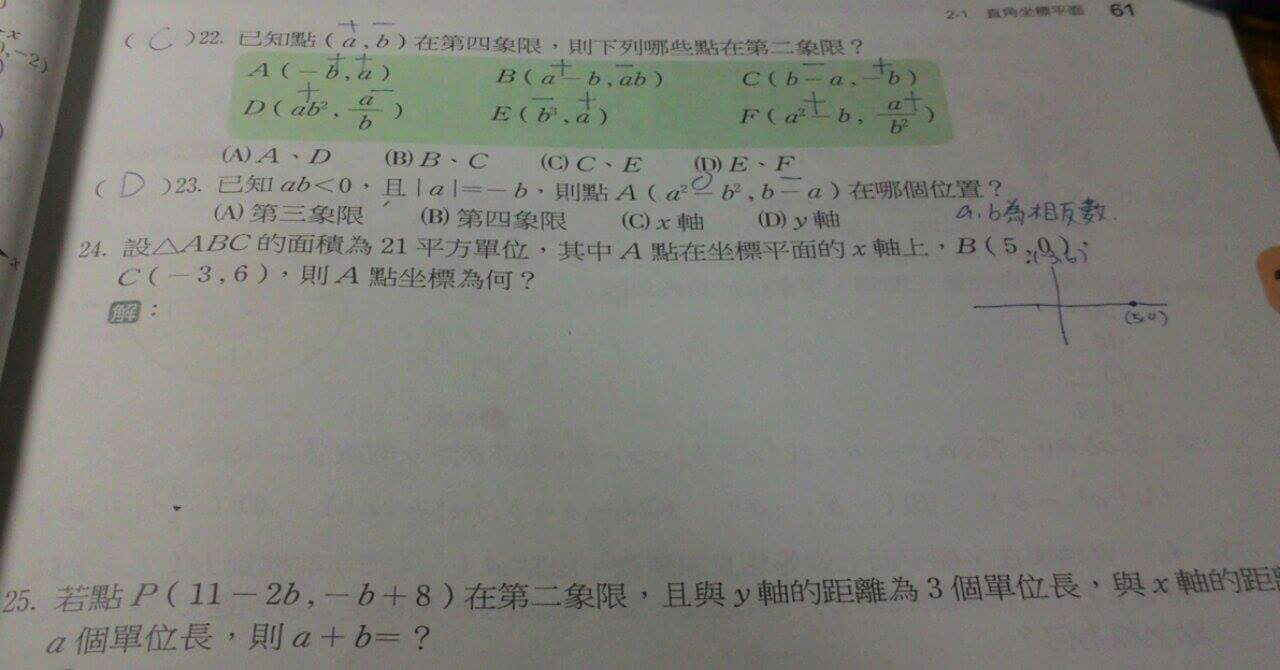 2-1 直角坐標平面 61
( C ) 22. 已知點 ( a , b ) 在第四象限，則下列哪些點在第二象限？
+ −
A ( − b , a ) B ( a − b , ab ) C ( b − a , − b )
+ + + − − +
D ( ab² , a/b ) E ( b³ , a ) F ( a² − b , a/b² )
+ − − + + +
(A) A、D (B) B、C (C) C、E (D) E、F
( D ) 23. 已知 ab<0，且 | a |=− b，則點 A ( a² − b² , b − a ) 在哪個位置？
0 −
(A) 第三象限 (B) 第四象限 (C) x 軸 (D) y 軸
a、b為相反數.
24. 設△ABC 的面積為 21 平方單位，其中 A 點在坐標平面的 x 軸上，B ( 5 , 0 )、
C ( − 3 , 6 )，則 A 點坐標為何？
解：
(5,0)
25. 若點 P ( 11 − 2b , − b + 8 ) 在第二象限，且與 y 軸的距離為 3 個單位長，與 x 軸的距
a 個單位長，則 a + b = ？
-x
,-2)
x